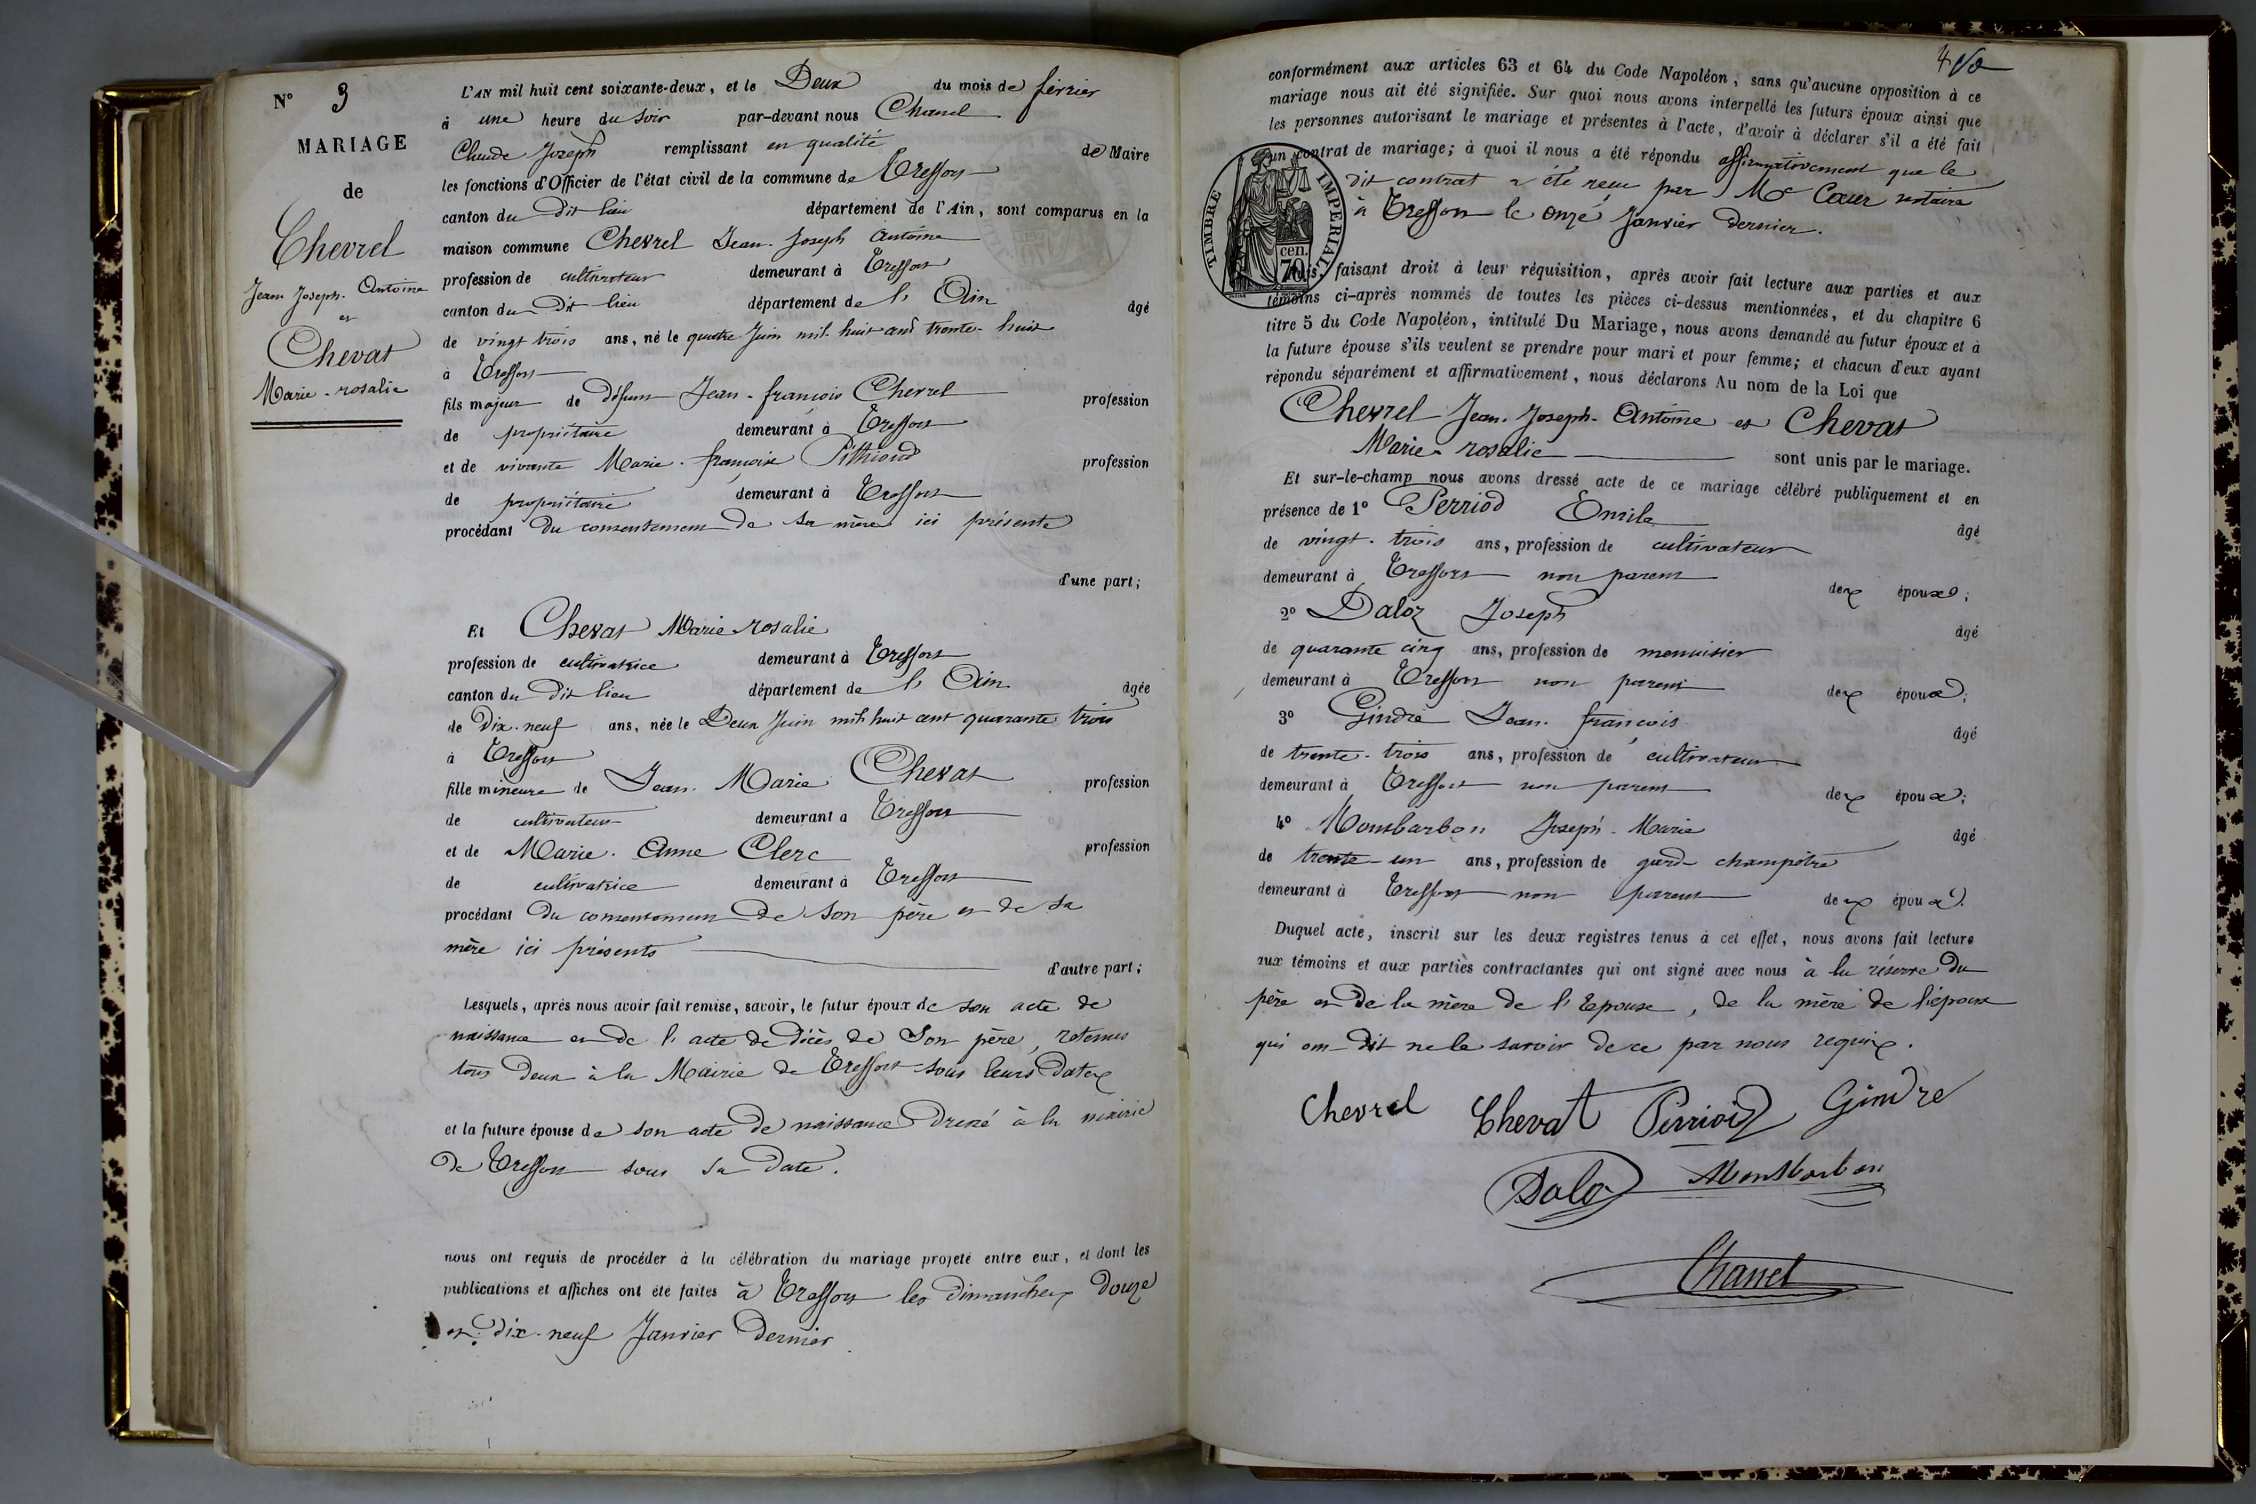 N° 3
MARIAGE
de
Chevrel
Jean Joseph. Antoine
et
Chevat
Marie-rosalie
L'AN mil huit cent soixante-deux, et le Deux du mois de février
à une heure du soir par-devant nous Chanel
Claude Joseph remplissant en qualité de Maire
les fonctions d'Officier de l'état civil de la commune de Treffort
canton du dit lieu département de l'Ain, sont comparus en la
maison commune Chevrel Jean. Joseph Antoine
profession de cultivateur demeurant à Treffort
canton du Dit lieu département de l'Ain âgé
de vingt trois ans, né le quatre Juin mil huit cent trente-huit
à Treffort
fils majeur de défunt Jean-françois Chevrel profession
de propriétaire demeurant à Treffort
et de vivante Marie-françoise Pithioud profession
de propriétaire demeurant à Treffort
procédant du consentement de sa mère ici présente
d'une part;
Et Chevat Marie rosalie
profession de cultivatrice demeurant à Treffort
canton du dit lieu département de l'Ain âgée
de Dix-neuf ans, née le Deux Juin mil huit cent quarante trois
à Treffort
fille mineure de Jean. Marie Chevat profession
de cultivateur demeurant à Treffort
et de Marie. Anne Clerc profession
de cultivatrice demeurant à Treffort
procédant du consentement de son père et de sa
mère ici présents
d'autre part;
Lesquels, après nous avoir fait remise, savoir, le futur époux de son acte de
naissance et de l'acte de décès de Son père, retenus
tous deux à la Mairie de Treffort sous leurs dates
et la future épouse de son acte de naissance dressé à la mairie
de Treffort sous sa date.
nous ont requis de procéder à la célébration du mariage projeté entre eux, et dont les
publications et affiches ont été faites à Treffort les dimanches douze
et dix-neuf Janvier dernier
4
conformément aux articles 63 et 64 du Code Napoléon, sans qu'aucune opposition à ce
mariage nous ait été signifiée. Sur quoi nous avons interpellé les futurs époux ainsi que
les personnes autorisant le mariage et présentes à l'acte, d'avoir à déclarer s'il a été fait
un contrat de mariage; à quoi il nous a été répondu affirmativement que le
dit contrat a été reçu par Me Cœur notaire
à Treffort le onze Janvier dernier.
TIMBRE IMPERIAL
cen.
70
faisant droit à leur réquisition, après avoir fait lecture aux parties et aux
témoins ci-après nommés de toutes les pièces ci-dessus mentionnées, et du chapitre 6
titre 5 du Code Napoléon, intitulé Du Mariage, nous avons demandé au futur époux et à
la future épouse s'ils veulent se prendre pour mari et pour femme; et chacun d'eux ayant
répondu séparément et affirmativement, nous déclarons Au nom de la Loi que
Chevrel Jean. Joseph. Antoine et Chevat
Marie-rosalie sont unis par le mariage.
Et sur-le-champ nous avons dressé acte de ce mariage célébré publiquement et en
présence de 1° Perriod Emile âgé
de vingt-trois ans, profession de cultivateur
demeurant à Treffort non parent des époux;
2° Daloz Joseph âgé
de quarante cinq ans, profession de menuisier
demeurant à Treffort non parent des époux;
3° Gindre Jean. françois âgé
de trente-trois ans, profession de cultivateur
demeurant à Treffort non parent des époux;
4° Monsbarbon Joseph-Marie âgé
de trente-un ans, profession de garde champêtre
demeurant à Treffort non parent des époux.
Duquel acte, inscrit sur les deux registres tenus à cet effet, nous avons fait lecture
aux témoins et aux parties contractantes qui ont signé avec nous à la réserve du
père et de la mère de l'Epouse, de la mère de l'époux
qui ont dit ne le savoir de ce par nous requis.
Chevrel Chevat Perriod Gindre
Daloz Monsbarbon
Chanel